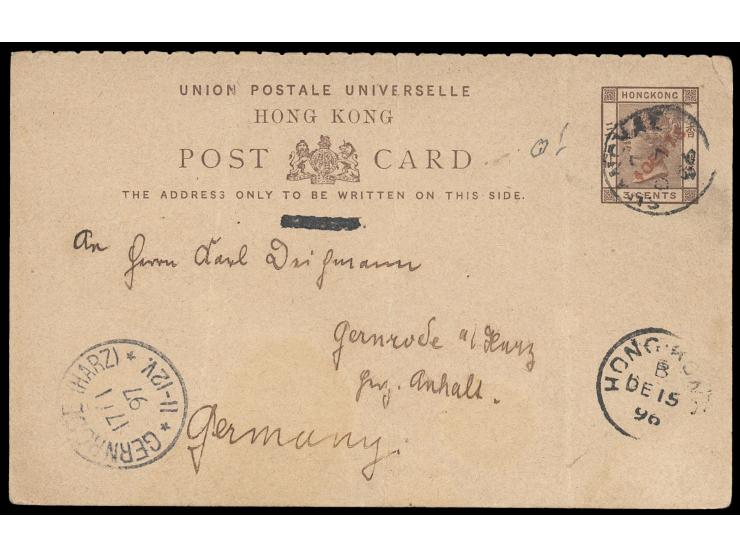 UNION POSTALE UNIVERSELLE
HONG KONG
POST CARD
THE ADDRESS ONLY TO BE WRITTEN ON THIS SIDE.
HONGKONG
3 CENTS
An
Herrn Karl Deißmann
Gernrode a/Harz
Hrz. Anhalt.
Germany.
GERNRODE (HARZ)
17 1
97
11-12V.
HONG-KONG
B
DE 15
96